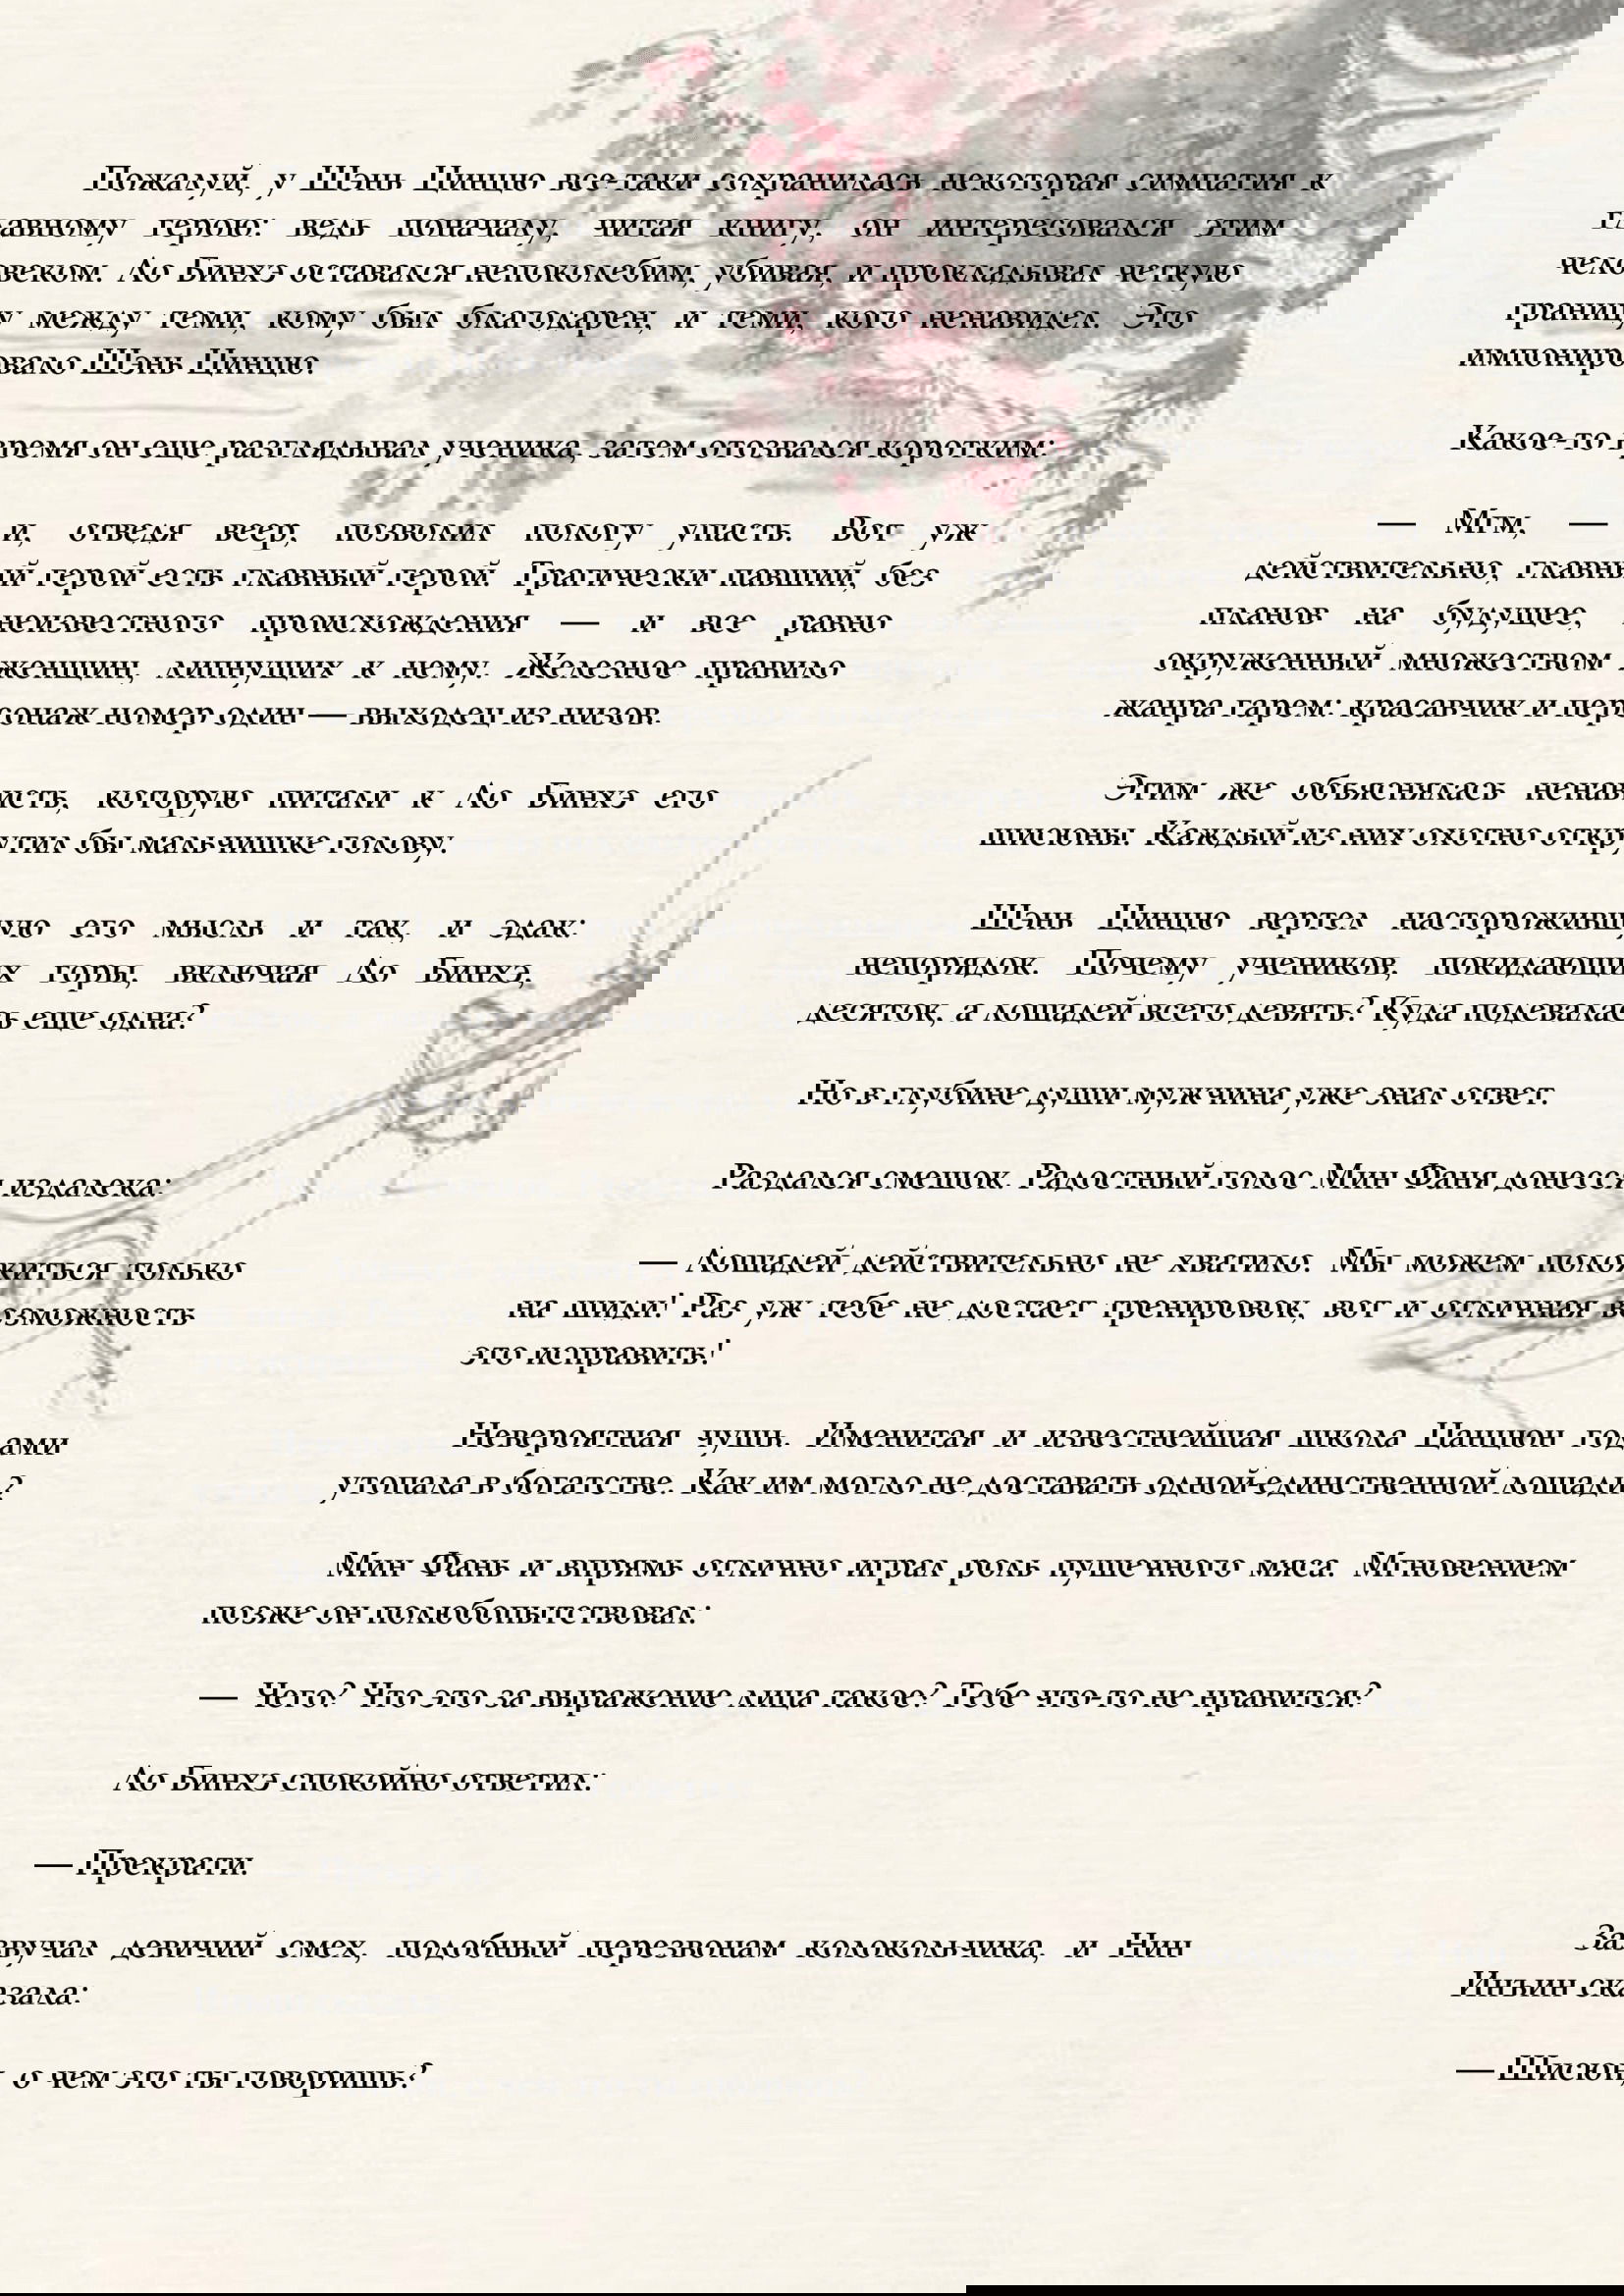 Пожалуй, у Шэнь Цинцю все-таки сохранилась некоторая симпатия к
главному герою: ведь поначалу, читая книгу, он интересовался этим
человеком. Ло Бинхэ оставался непоколебим, убивая, и прокладывал четкую
границу между теми, кому был благодарен, и теми, кого ненавидел. Это
импонировало Шэнь Цинцю.
Какое-то время он еще разглядывал ученика, затем отозвался коротким:
— Мгм, — и, отведя веер, позволил пологу упасть. Вот уж
действительно, главный герой есть главный герой. Трагически павший, без
планов на будущее, неизвестного происхождения — и все равно
окруженный множеством женщин, липнущих к нему. Железное правило
жанра гарем: красавчик и персонаж номер один — выходец из низов.
Этим же объяснялась ненависть, которую питали к Ло Бинхэ его
шисюны. Каждый из них охотно открутил бы мальчишке голову.
Шэнь Цинцю вертел насторожившую его мысль и так, и эдак:
непорядок. Почему учеников, покидающих горы, включая Ло Бинхэ,
десяток, а лошадей всего девять? Куда подевалась еще одна?
Но в глубине души мужчина уже знал ответ.
Раздался смешок. Радостный голос Мин Фаня донесся издалека:
— Лошадей действительно не хватило. Мы можем положиться только
на шиди! Раз уж тебе не достает тренировок, вот и отличная возможность
это исправить!
Невероятная чушь. Именитая и известнейшая школа Цанцюн годами
утопала в богатстве. Как им могло не доставать одной-единственной лошади?
Мин Фань и впрямь отлично играл роль пушечного мяса. Мгновением
позже он полюбопытствовал:
— Чего? Что это за выражение лица такое? Тебе что-то не нравится?
Ло Бинхэ спокойно ответил:
— Прекрати.
Зазвучал девичий смех, подобный перезвонам колокольчика, и Нин
Инъин сказала:
— Шисюн, о чем это ты говоришь?